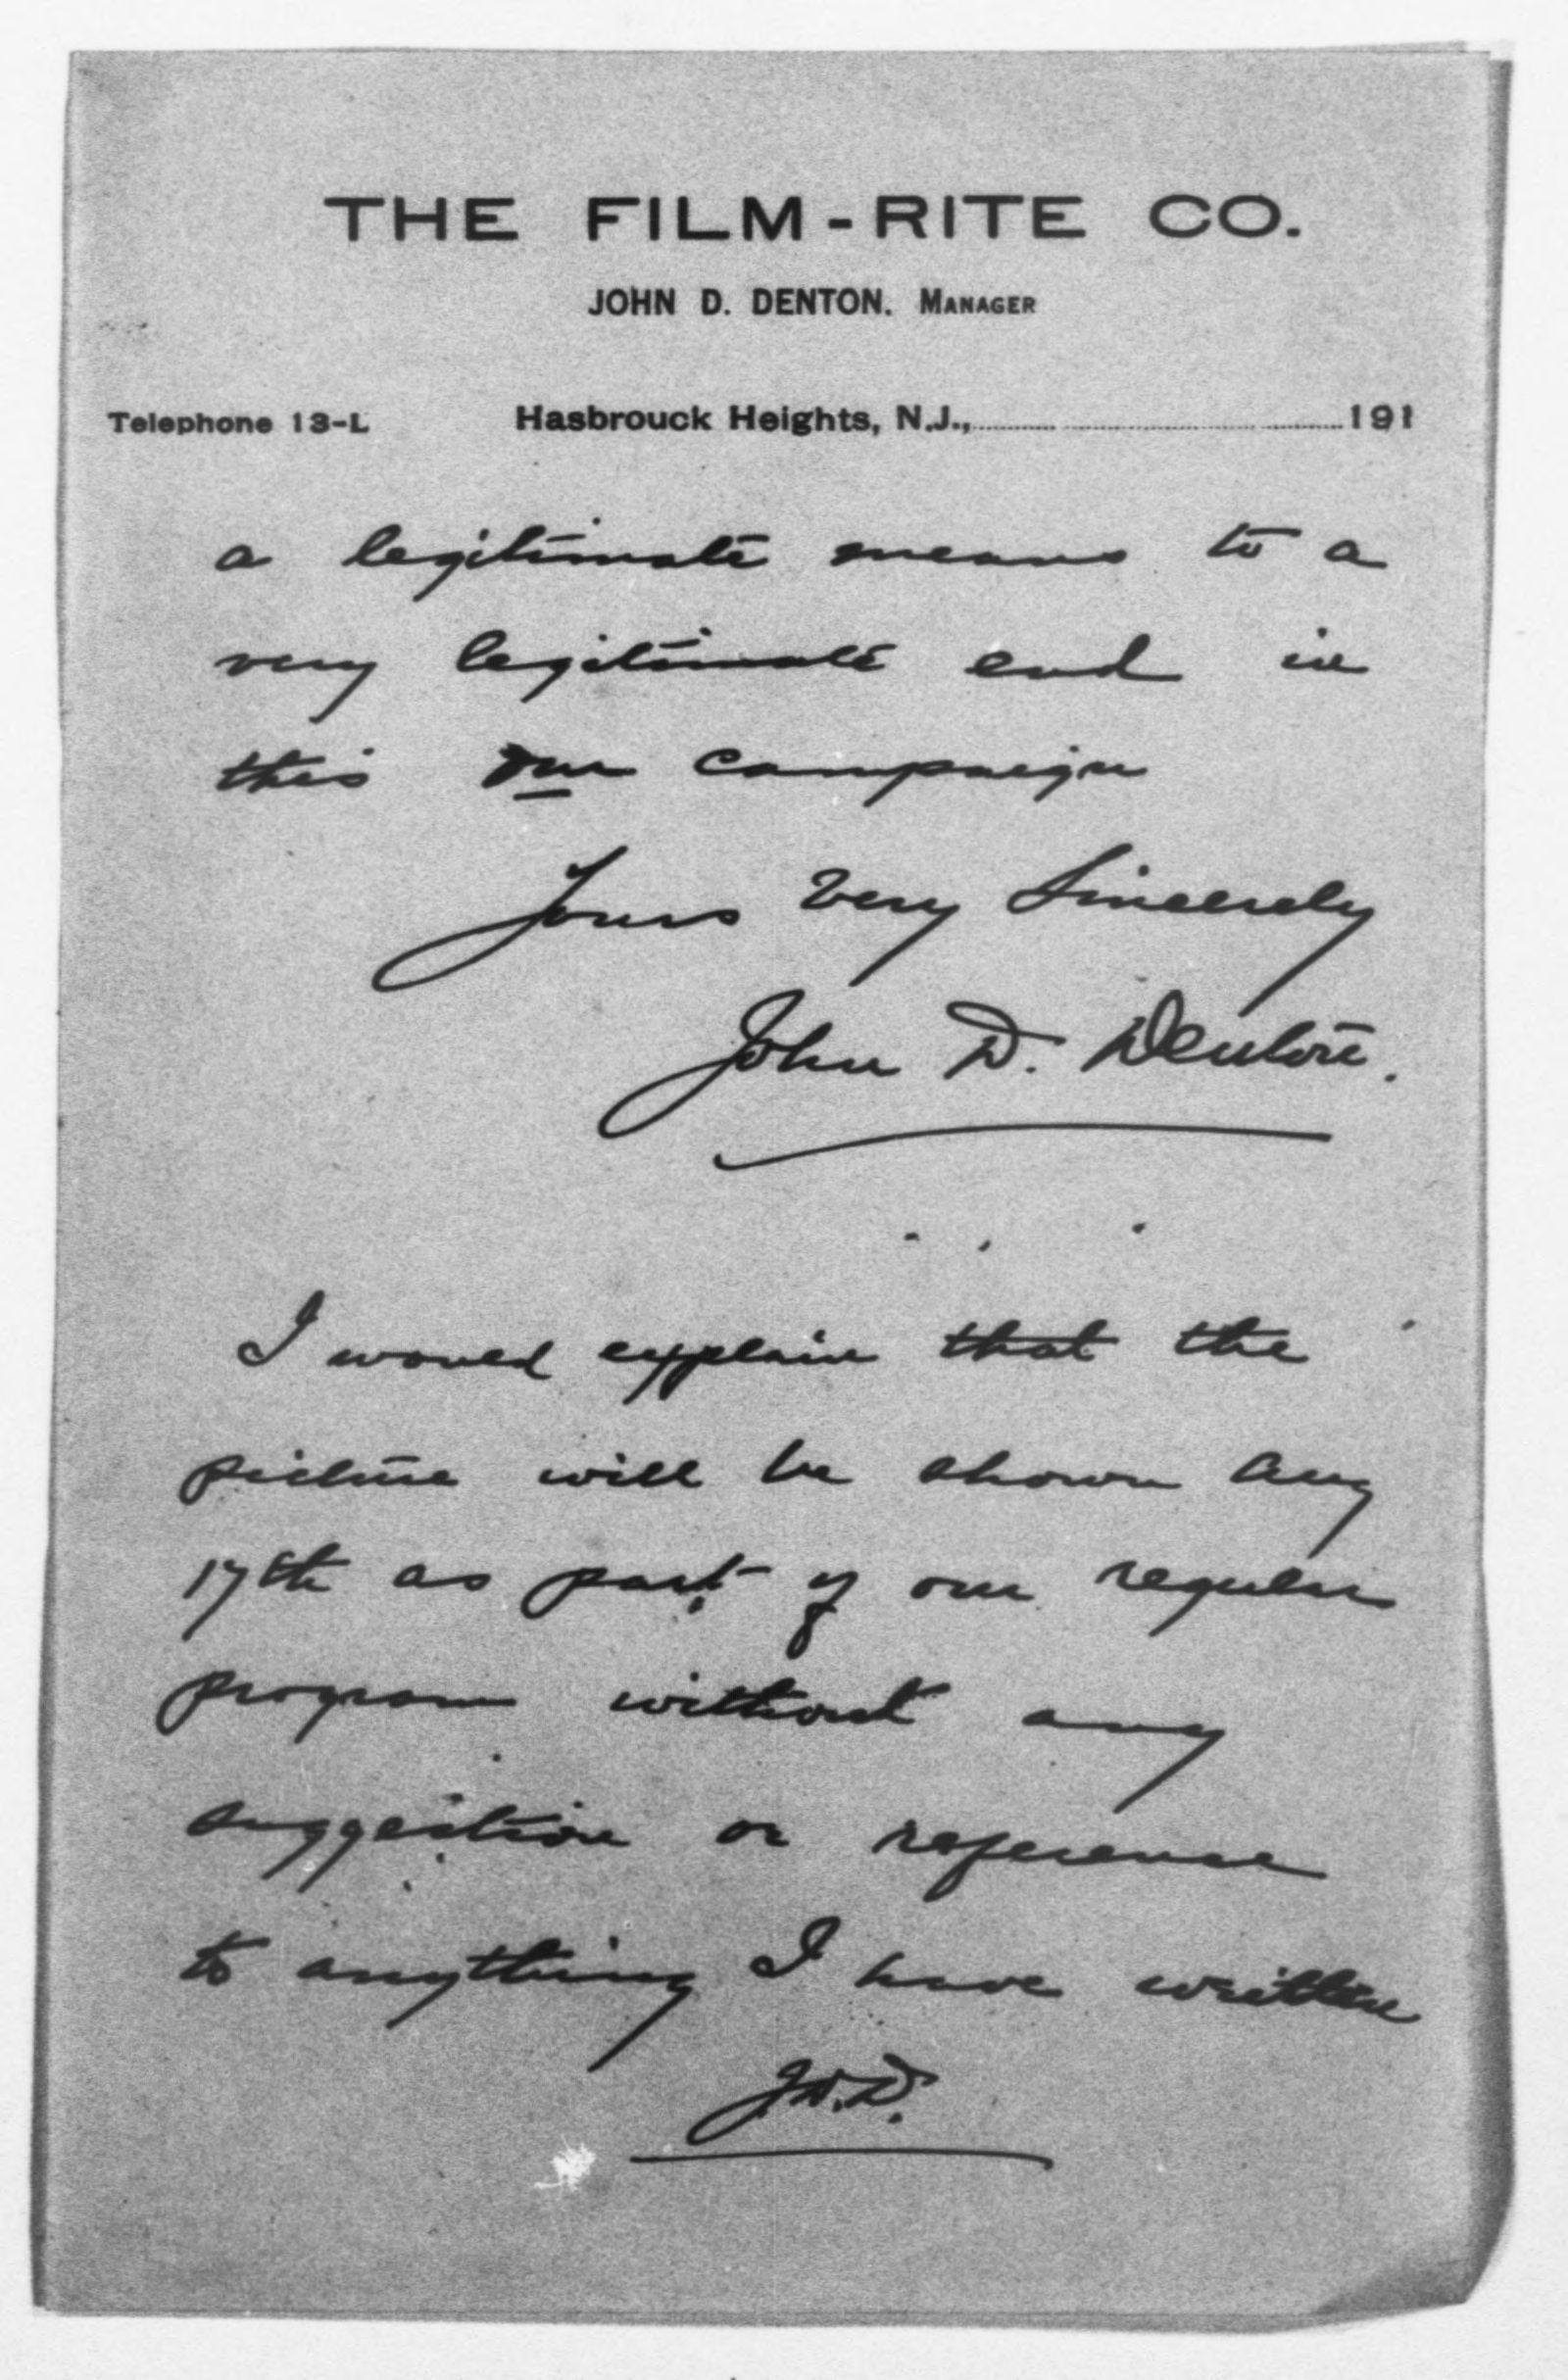 THE FILM-RITE CO.
JOHN D. DENTON. MANAGER
Telephone 13-L Hasbrouck Heights, N.J., 191
a legitimate means to a
very legitimate end in
this our campaign
Yours Very Sincerely
John D. Denton.
I would explain that the
picture will be shown Aug
17th as part of our regular
program without any
suggestion or reference
to anything I have written
J.D.D.